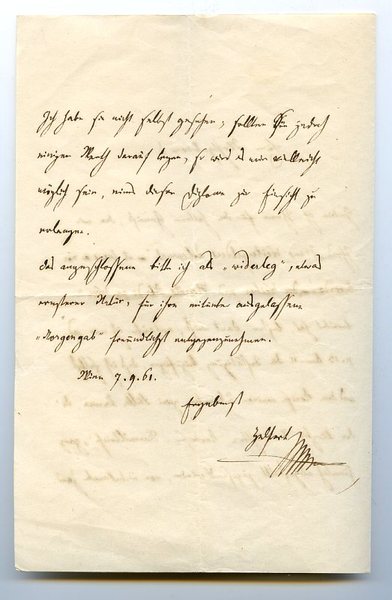 Ich habe sie nicht selbst gesehen, sollten Sie jedoch
einigen Werth darauf legen, so wird es mir vielleicht
möglich sein, eines dieser Diplome zur Einsicht zu
erlangen.
Das angeschlossene bitte ich als „Widerleg“, etwas
ernsterer Natur, für Ihre mitunter ausgelassene
„Morgengab“ freundlichst entgegenzunehmen.
Wien 7.9.61.
Ergebenst
Helfert